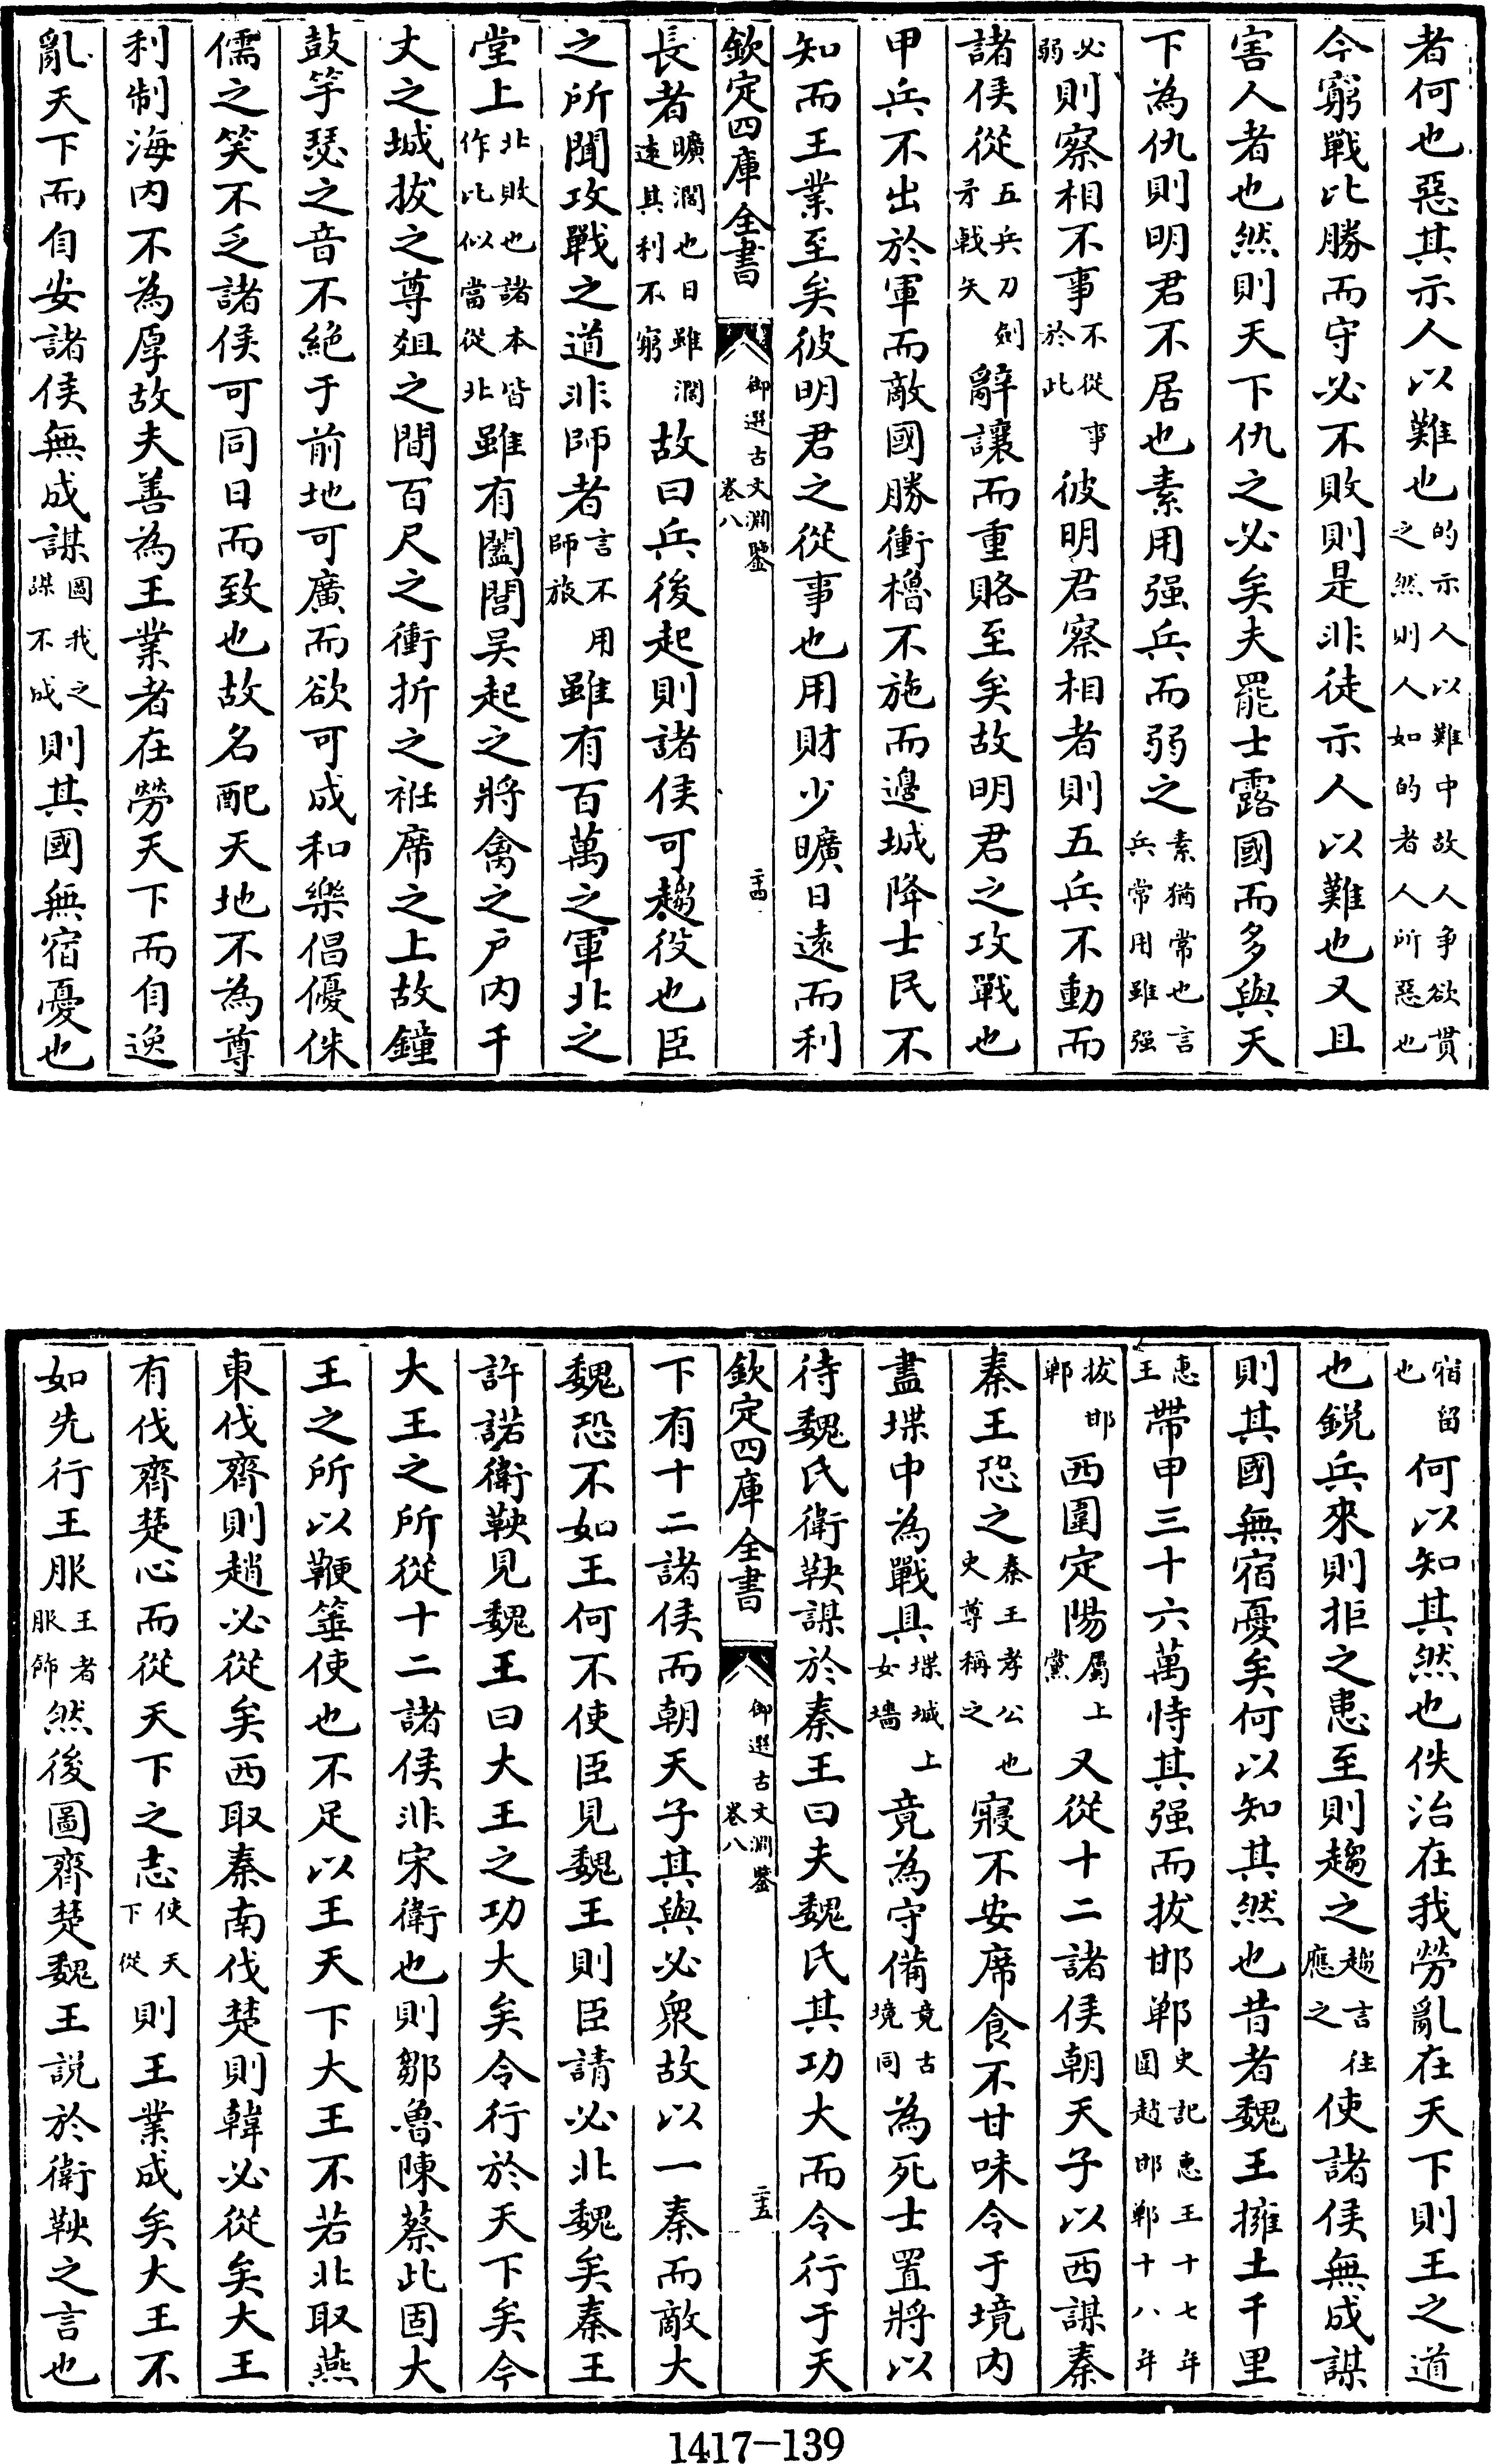 者何也惡其示人以難也的示人以難中故人争欲貫之然則人如的者人所惡也
今窮戰比勝而守必不敗則是非徒示人以難也又且
害人者也然則天下仇之必矣夫罷士露國而多與天
下為仇則明君不居也素用强兵而弱之素猶常也言兵常用雖强
必弱則察相不事不從事於此彼明君察相者則五兵不動而
諸侯從五兵刀劍矛戟矢辭讓而重賂至矣故明君之攻戰也
甲兵不出於軍而敵國勝衝櫓不施而邊城降士民不
知而王業至矣彼明君之從事也用財少曠日遠而利
欽定四庫全書 御選古文淵鑒卷八 二十四
長者曠濶也日雖濶遠其利不窮故曰兵後起則諸侯可趨役也臣
之所聞攻戰之道非師者言不用師旅雖有百萬之軍北之
堂上北敗也諸本皆作比似當從北雖有闔閭吴起之將禽之户内千
丈之城拔之尊俎之間百尺之衝折之袵席之上故鐘
鼓竽瑟之音不絶于前地可廣而欲可成和樂倡優侏
儒之笑不乏諸侯可同日而致也故名配天地不為尊
利制海内不為厚故夫善為王業者在勞天下而自逸
亂天下而自安諸侯無成謀圖我之謀不成則其國無宿憂也
宿留也何以知其然也佚治在我勞亂在天下則王之道
也鋭兵來則拒之患至則趨之趨言往應之使諸侯無成謀
則其國無宿憂矣何以知其然也昔者魏王擁土千里
惠王帶甲三十六萬恃其强而拔邯鄲史記惠王十七年圍趙邯鄲十八年
拔邯鄲西圍定陽屬上黨又從十二諸侯朝天子以西謀秦
秦王恐之秦王孝公也史尊稱之寢不安席食不甘味令于境内
盡堞中為戰具堞城上女墻竟為守備竟古境同為死士置將以
待魏氏衛鞅謀於秦王曰夫魏氏其功大而令行于天
欽定四庫全書 御選古文淵鑒卷八 二十五
下有十二諸侯而朝天子其與必衆故以一秦而敵大
魏恐不如王何不使臣見魏王則臣請必北魏矣秦王
許諾衛鞅見魏王曰大王之功大矣令行於天下矣今
大王之所從十二諸侯非宋衛也則鄒魯陳蔡此固大
王之所以鞭箠使也不足以王天下大王不若北取燕
東伐齊則趙必從矣西取秦南伐楚則韓必從矣大王
有伐齊楚心而從天下之志使天下從則王業成矣大王不
如先行王服王者服飾然後圖齊楚魏王説於衛鞅之言也
1417-139